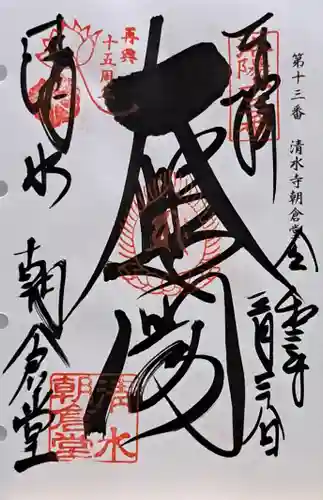 第十三番 清水寺朝倉堂
奉拝
令和三年
再興
十五周
大悲閣
清水
朝倉堂
清水
朝倉堂